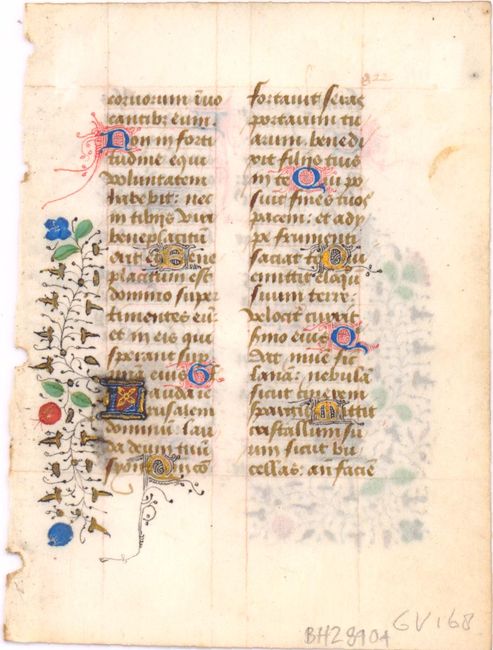 coruorum inuo
cantibꝫ eum.
Non in forti
tudine equi
voluntatem
habebit: nec
in tibijs viri
beneplacitū
erit ei. Bene
placitum est
domino super
timentes eū
et in eis qui
sperant sup
mia eius Gᵃ
Lauda ie
rusalem
dominū: lau
da deum tuū
syon. Quo
fortauit seras
portarum tu
arum: benedi
xit filijs tuis
in te. Qui po
suit fines tuos
pacem: et adi
pe frumenti
saciat te Qui
emittit eloqu
suum terre:
velociter currit
sermo eius Q
dat niue sic
lanam: nebulā
sicut cinerem
spargit Mittit
cristallum su
um sicut bu
cellas: an facie
822
BH28904 GV168